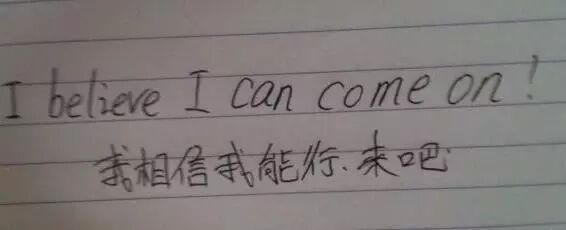 I believe I can come on!
我相信我能行.来吧